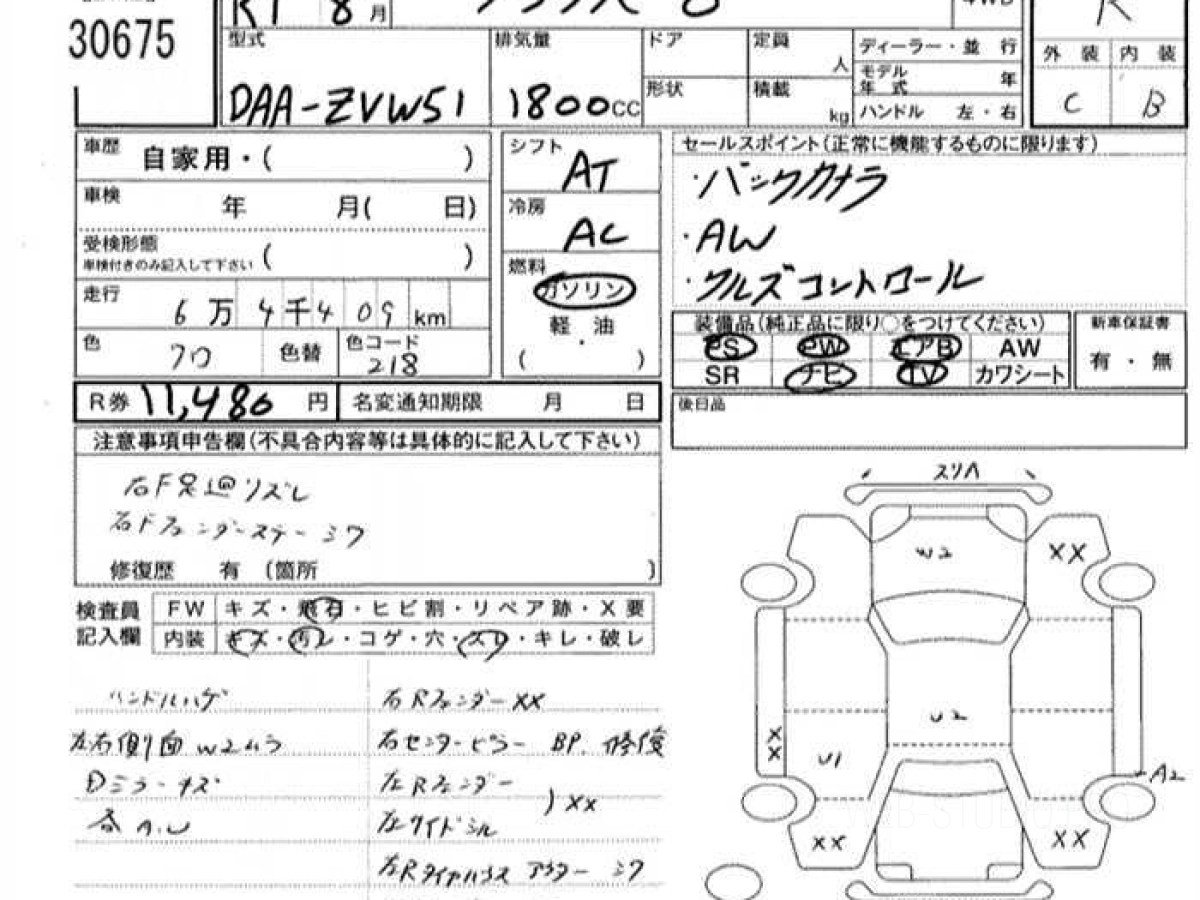 30675
R1 8月
型式 DAA-ZVW51
排気量 1800CC
ドア
形状
定員 人
積載 kg
ディーラー・並 行
モデル年式 年
ハンドル 左・右
外 装 内 装
C B
車歴 自家用・( )
車検 年 月( 日)
受検形態
車検付きのみ記入して下さい ( )
走行 6万4千409km
色 クロ 色替 色コード 218
シフト AT
冷房 AC
燃料 ガソリン
軽・油
( )
セールスポイント(正常に機能するものに限ります)
・バックカメラ
・AW
・クルズコントロール
装備品(純正品に限り○をつけてください)
PS PW エアB AW
SR ナビ TV カワシート
新車保証書
有・無
R券 11,480円 名変通知期限 月 日
後日品
注意事項申告欄(不具合内容等は具体的に記入して下さい)
右F足廻リズレ
右Fフェンダーステー シワ
修復歴 有 (箇所 )
検査員記入欄
FW キズ・飛石・ヒビ割・リペア跡・X要
内装 キズ・汚レ・コゲ・穴・スレ・キレ・破レ
ハンドルハゲ
左右側面 W2ムラ
Dミラーキズ
各A.U
右Rフェンダー XX
右センターピラー BP.修復
左Rフェンダー
左サイドシル
) XX
左Rタイヤハウス アウター シワ
スリ
W2
XX
U2
XX
U1
A2
XX
XX